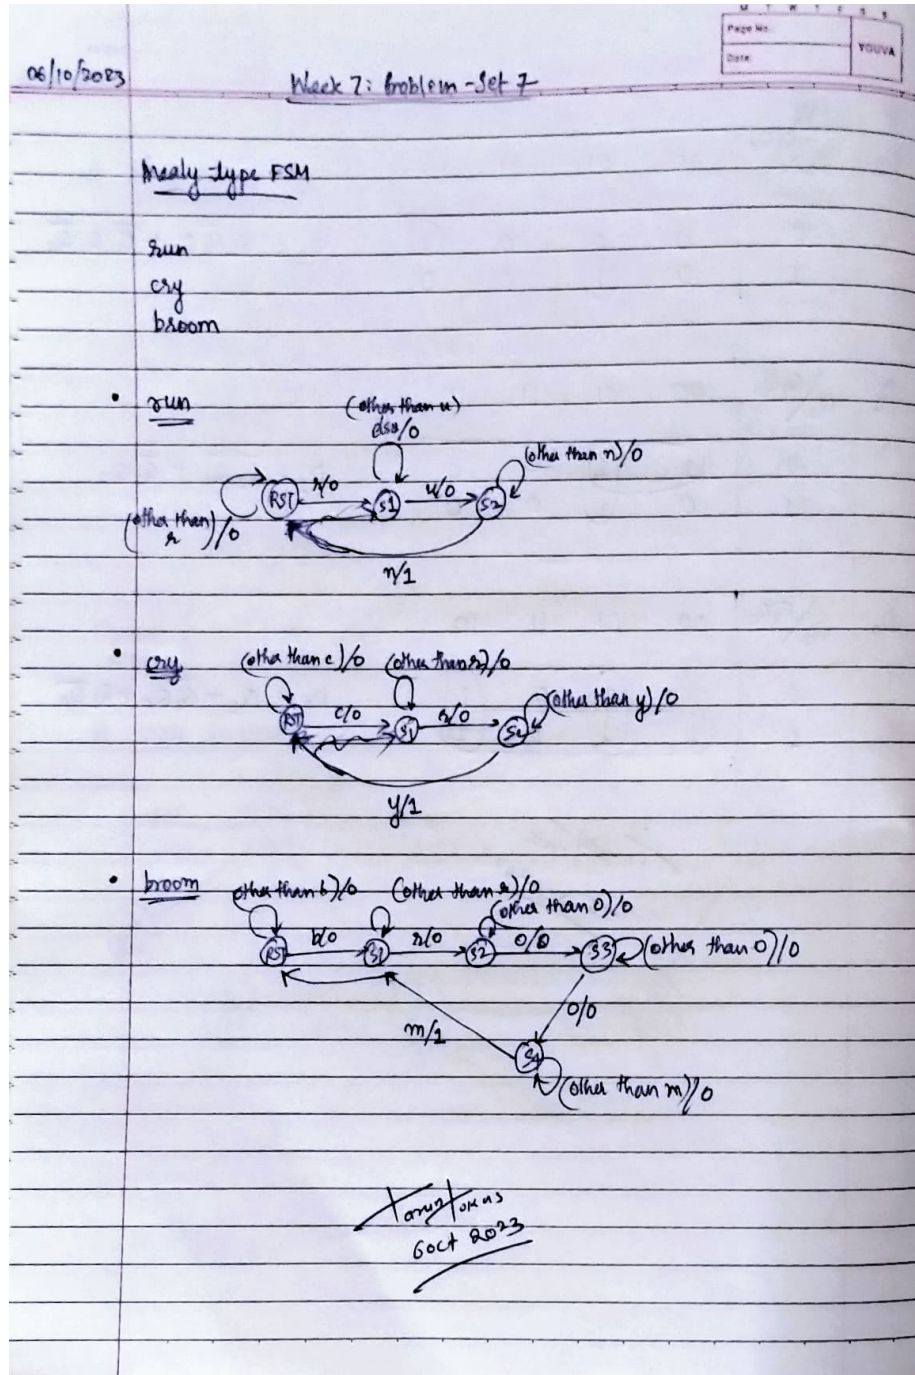 M T W T F S S
Page No.:
Date:
YOUVA
06/10/2023
Week 7: Problem-Set 7
Mealy type FSM
run
cry
broom
• run
(other than u)
/0
(other than n)/0
RST
r/0
S1
u/0
S2
(other than r)/0
n/1
• cry
(other than c)/0
(other than r)/0
(other than y)/0
RST
c/0
S1
r/0
S2
y/1
• broom
(other than b)/0
(other than r)/0
(other than o)/0
RST
b/0
S1
r/0
S2
o/0
S3
(other than o)/0
o/0
m/1
S4
(other than m)/0
6 Oct 2023